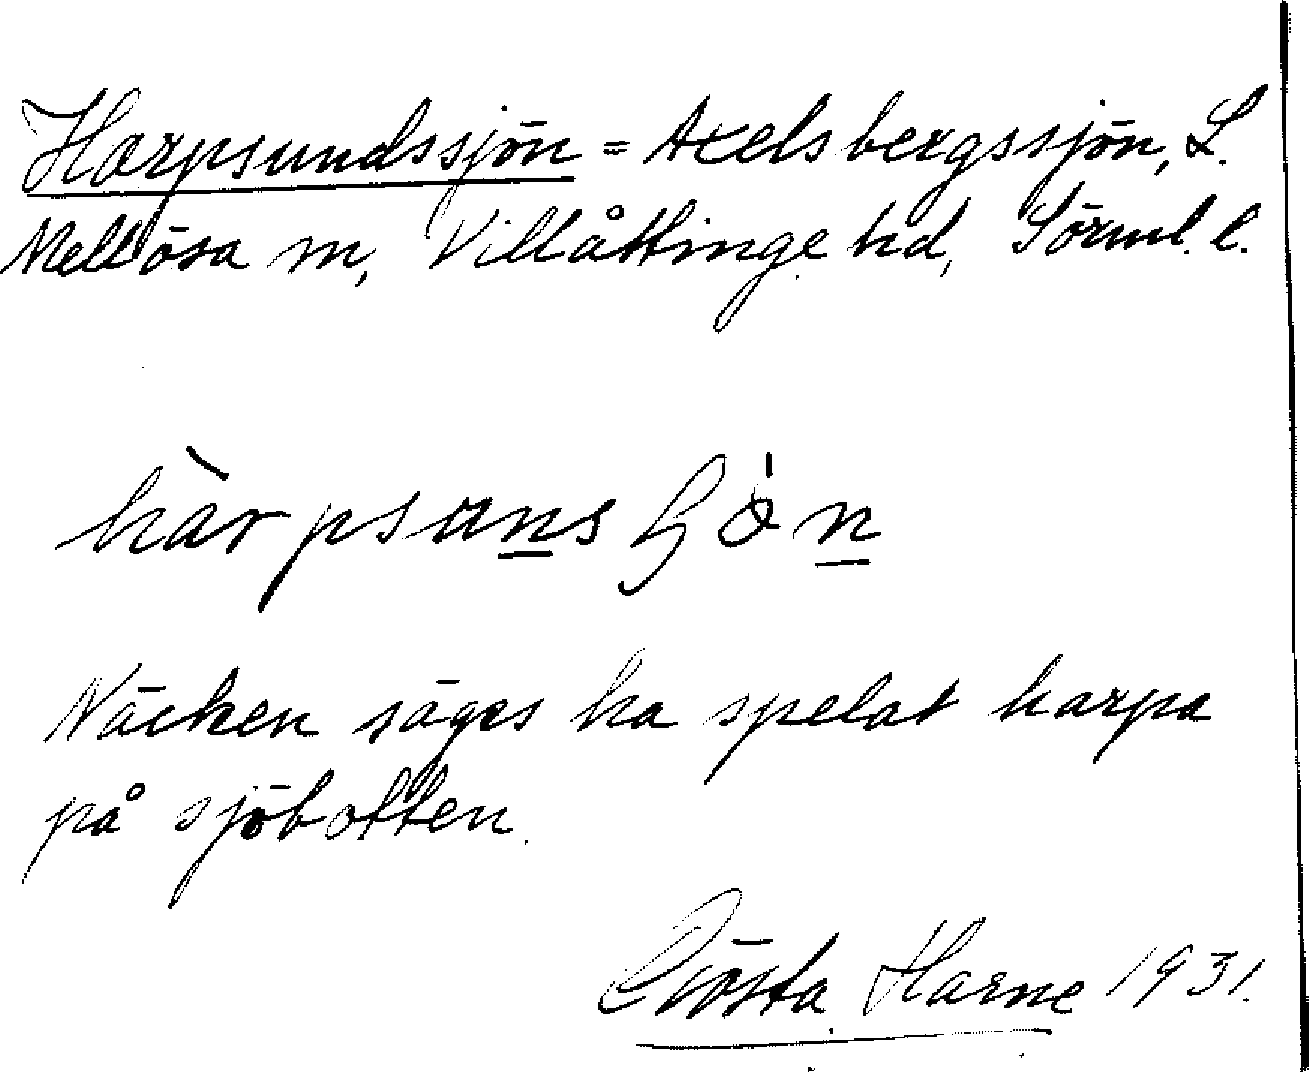 Harpsundssjön = Axelsbergssjön, L.
Mellösa sn, Villåttinge hd, Sörml. l.
Näcken säges ha spelat harpa
på sjöbotten.
Gösta Harne 1931.